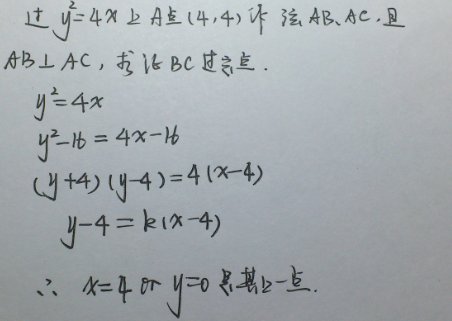 过 y²=4x 上 A点(4,4) 作 弦 AB、AC. 且
AB⊥AC, 求证 BC 过定点.
y²=4x
y²-16=4x-16
(y+4)(y-4)=4(x-4)
y-4=k(x-4)
∴ x=4 or y=0 是其上一点.